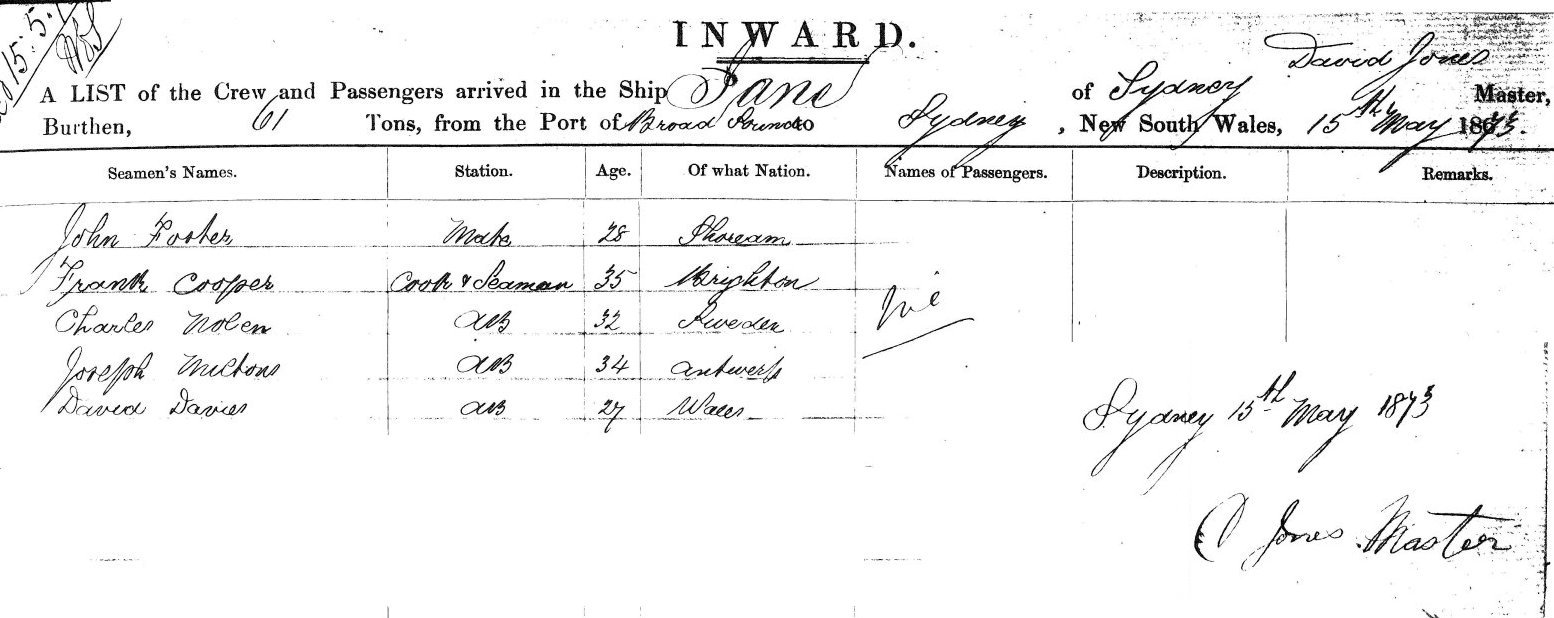 15.5.
INWARD.
David Jones
A LIST of the Crew and Passengers arrived in the Ship Jane of Sydney Master,
Burthen, 61 Tons, from the Port of Broad Sound to Sydney, New South Wales, 15th May 1873.
Seamen's Names. Station. Age. Of what Nation. Names of Passengers. Description. Remarks.
John Foster Mate 28 Shoream
Frank Cooper Cook & Seaman 35 Brighton
Charles Nolen AB 32 Sweden
Nil
Joseph AB 34 Antwerp
David Davies AB 27 Wales
Sydney 15th May 1873
D Jones Master